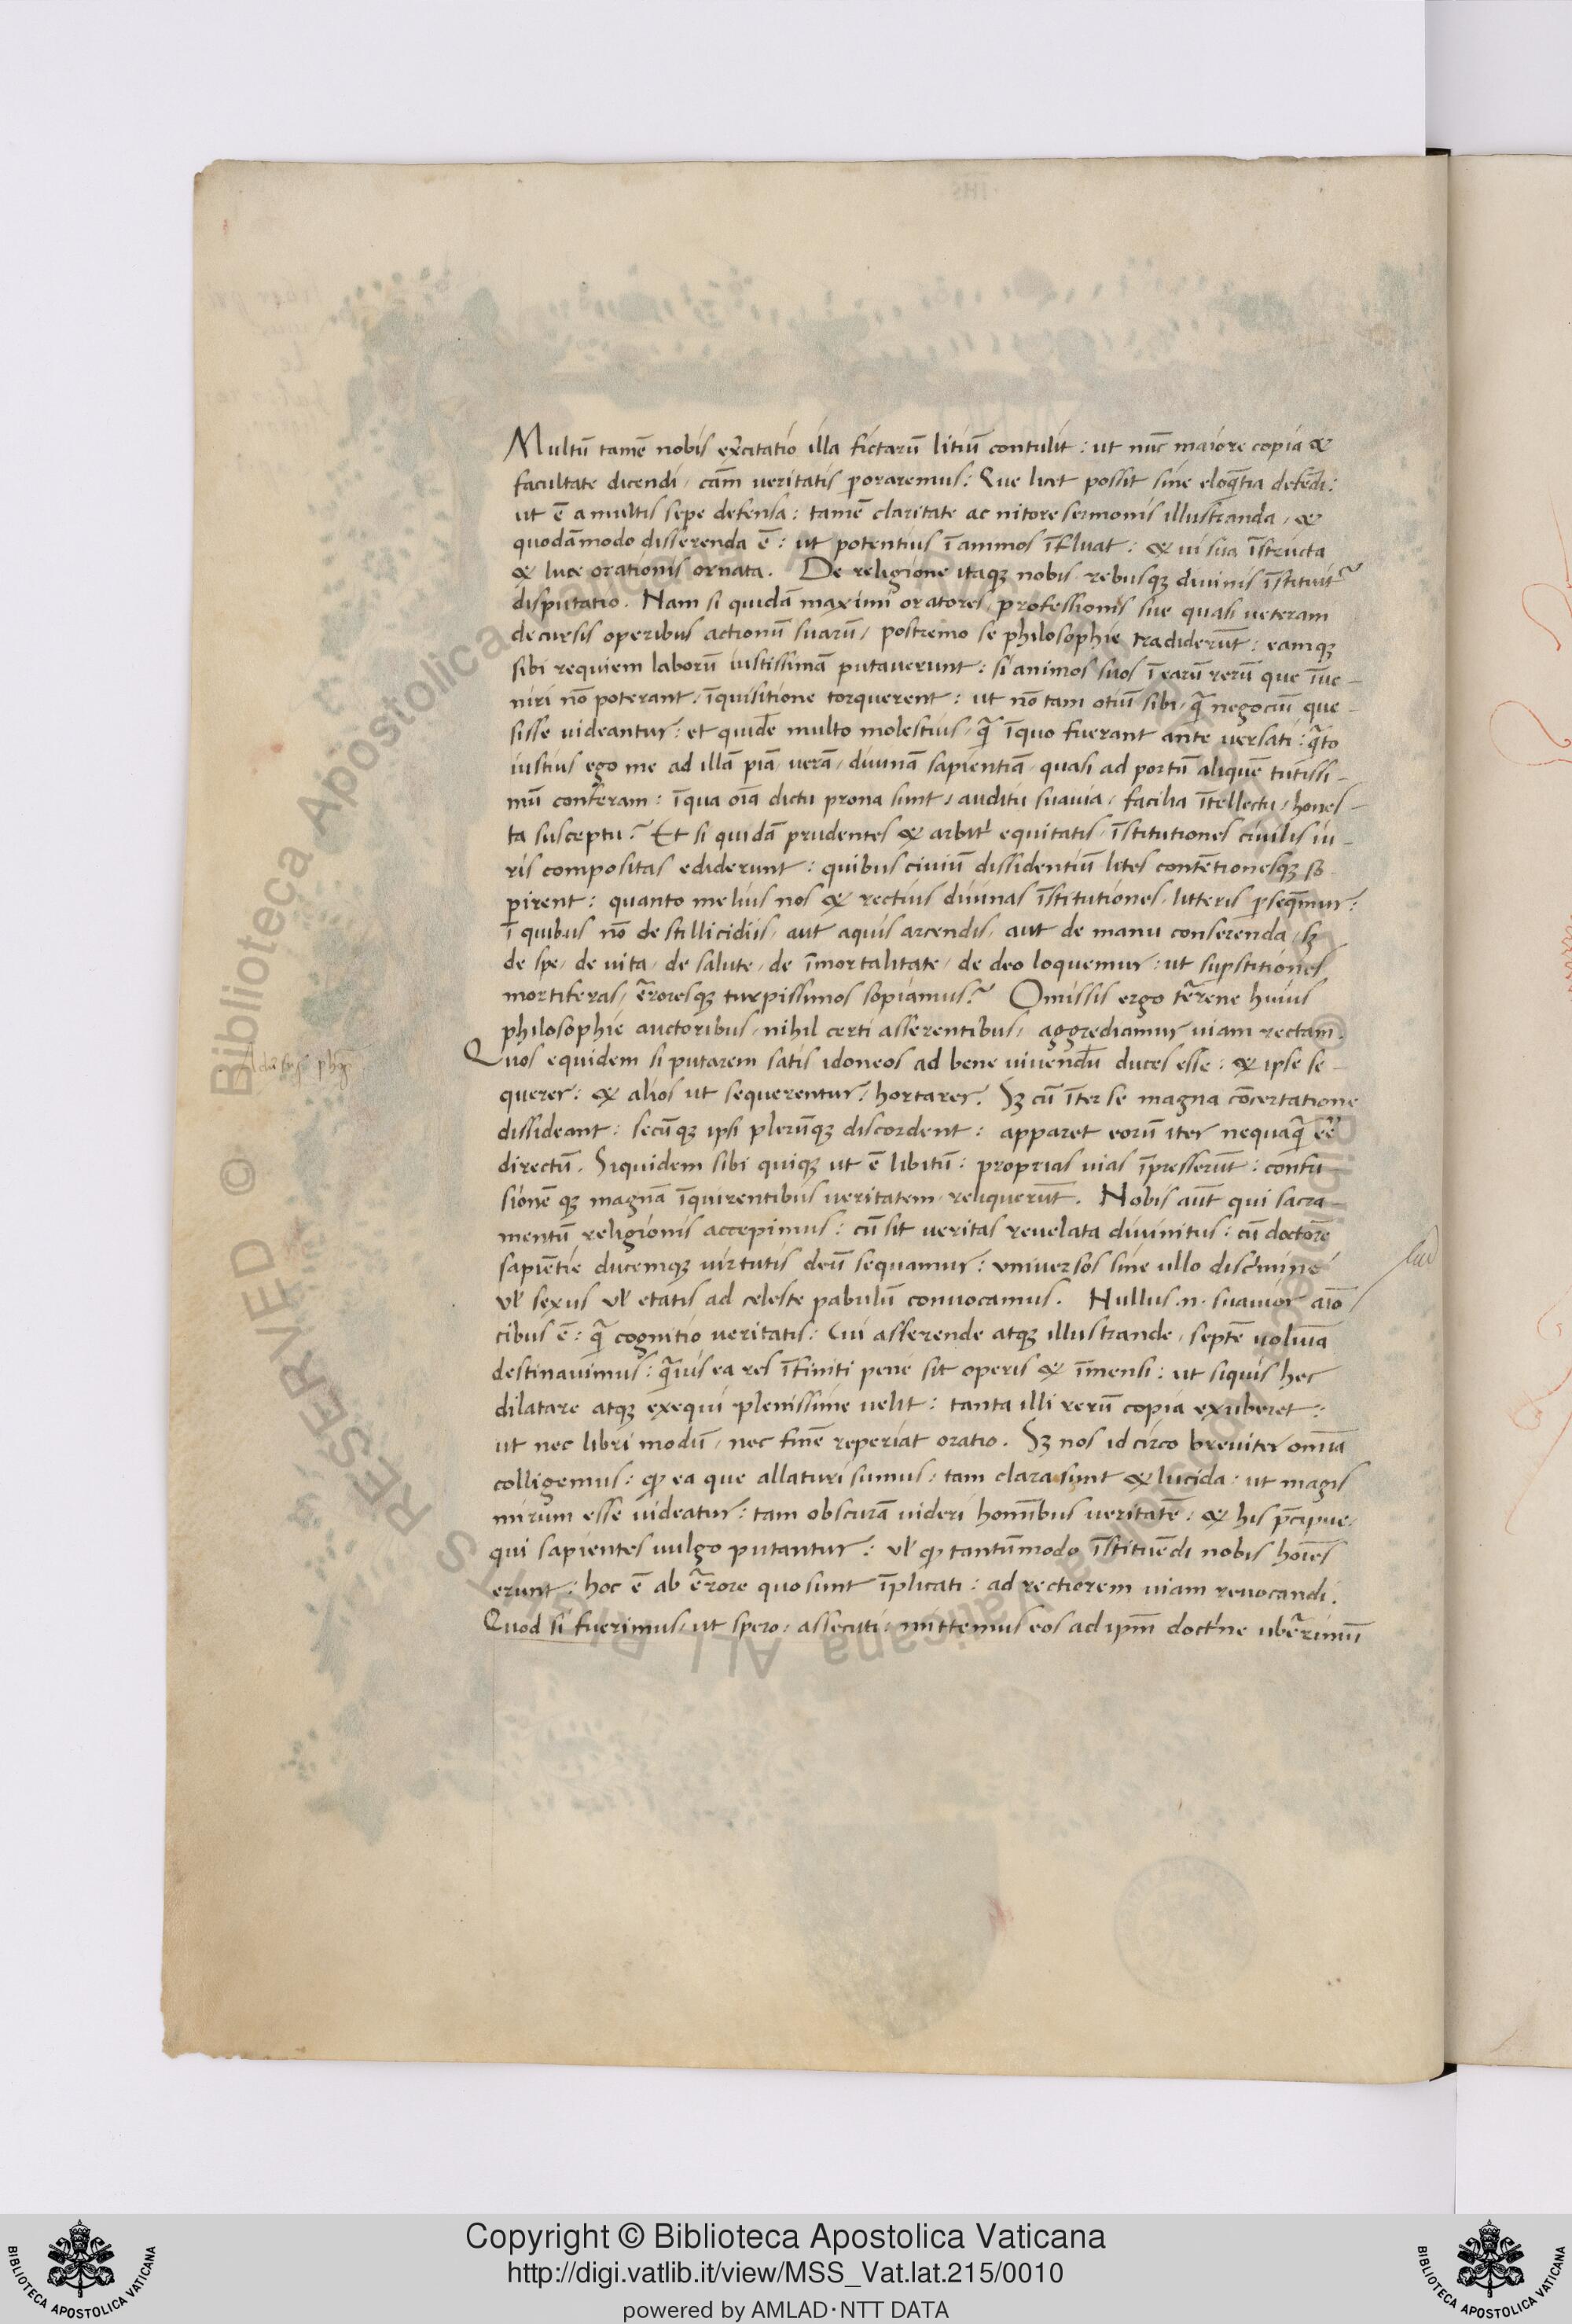 Multū tamē nobis exĉitatio illa fictarū litiū contulit : ut nūc maiore copia &
facultate dicendi / cām veritatis poraremus : Que licet possit sine eloq̄ntia defēdi :
ut ē a multis sepe defensa : tamē claritate ac nitore sermonis illustranda / &
quodāmodo disserenda ē : ut potentius ī animos īfluat : & ui sua īstructa
& luce orationis ornata . De religione itaqꝫ nobis rebusqꝫ divinis īstituit᷑
disputatio . Nam si quidā maximi oratores / professionis sue quasi veteram
decursis operibus actionū suarū / postremo se philosophie tradiderūt : eamqꝫ
sibi requiem laborū iustissimā putaverunt : si animos suos ī earū rerū que īue-
niri nō poterant / īquisitione torquerent : ut nō tam otiū sibi / q̄ negociū que-
sisse uideantur : et quidē multo molestius / q̄ īquo fuerant ante versati : q̄to
iustius ego me ad illā piā / verā / divinā sapientiā / quasi ad portū aliquē tutissi-
mū conferam : īqua oīa dictu prona sunt / auditu suavia / facilia ītellectu / hones-
ta susceptu ? Et si quidā prudentes & arbitˀ equitatis / īstitutiones civilis iu-
ris compositas ediderunt : quibus civiū dissidentiū lites contētionesqꝫ so-
pirent : quanto melius nos & rectius divinas īstitutiones / litteris ꝑseq̄mur :
ī quibus nō de stillicidiis / aut aquis arcendis / aut de manu conserenda / sꝫ
de spe / de vita / de salute / de īmortalitate / de deo loquemur : ut suꝑstitiones
mortiferas / ērroresqꝫ turpissimos sopiamus ? Omissis ergo tērene huius
philosophie auctoribus / nihil certi asserentibus / aggrediamur viam rectam .
Quos equidem si putarem satis idoneos ad bene uivendū duces esse : & ipse se-
querer : & alios ut sequerentur / hortarer . Sꝫ cū īter se magna cōcertatione
dissideant : secūqꝫ ipsi plerūqꝫ discordent : apparet eorū iter nequaq̄ eē
directū . Siquidem sibi quiqꝫ ut ē libitū : proprias vias īpresserūt : confu-
sionē qꝫ magnā īquirentibus veritatem / reliquerūt . Nobis aūt qui sacra-
mentū religionis accepimus : cū sit veritas revelata divinitus : cū doctorē
sapiētie ducemqꝫ virtutis deū sequamur : universos sine ullo discˀmine
vl̄ sexus vl̄ etatis ad celeste pabulū convocamus . Nullus .n. suavior aīo
cibus ē : q̄ cognitio veritatis : Cui asserende atqꝫ illustrande / septē volumīa
destinavimus : q̄ius ea res īfiniti pene sit operis & īmensi : ut siquis hec
dilatare atqꝫ exequi plenissime velit : tanta illi rerū copia exuberet :
ut nec libri modū / nec finē reperiat oratio . Sꝫ nos idcirco breviter omīa
colligemus : ꝙ ea que allaturi sumus : tam clara sunt & lucida : ut magis
mirum esse videatur : tam obscurā videri homībus veritatē : & his p̄cipue /
qui sapientes vulgo putantur : vl̄ ꝙ tantūmodo īstituēdi nobis hoīes
erunt : hoc ē ab ērrore quo sunt īplicati : ad rectiorem viam revocandi .
Quod si fuerimus / ut spero / assecuti : mittemus eos ad ipm̄ doctˀne ubērimū
Copyright © Biblioteca Apostolica Vaticana
http://digi.vatlib.it/view/MSS_Vat.lat.215/0010
powered by AMLAD·NTT DATA
BIBLIOTECA APOSTOLICA VATICANA
BIBLIOTECA APOSTOLICA VATICANA